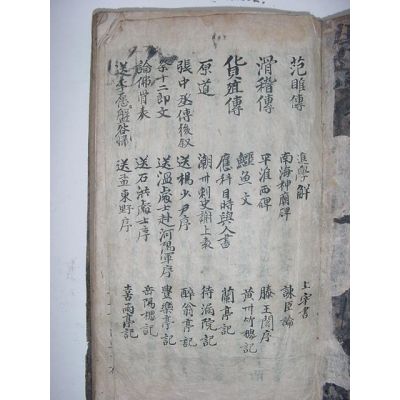 范雎傳
滑稽傳
貨殖傳
原道
張中丞傳後叙
祭十二郎文
論佛骨表
送李愿盤谷
進學解
南海神廟碑
平淮西碑
鱷魚文
應科目時與人書
潮州刺史謝上表
送楊少尹序
送溫處士赴河陽軍序
送石洪處士序
送孟東野序
上宰書
諫臣論
滕王閣序
黄州竹樓記
蘭亭記
待漏院記
醉翁亭記
豐樂亭記
岳陽樓記
喜雨亭記